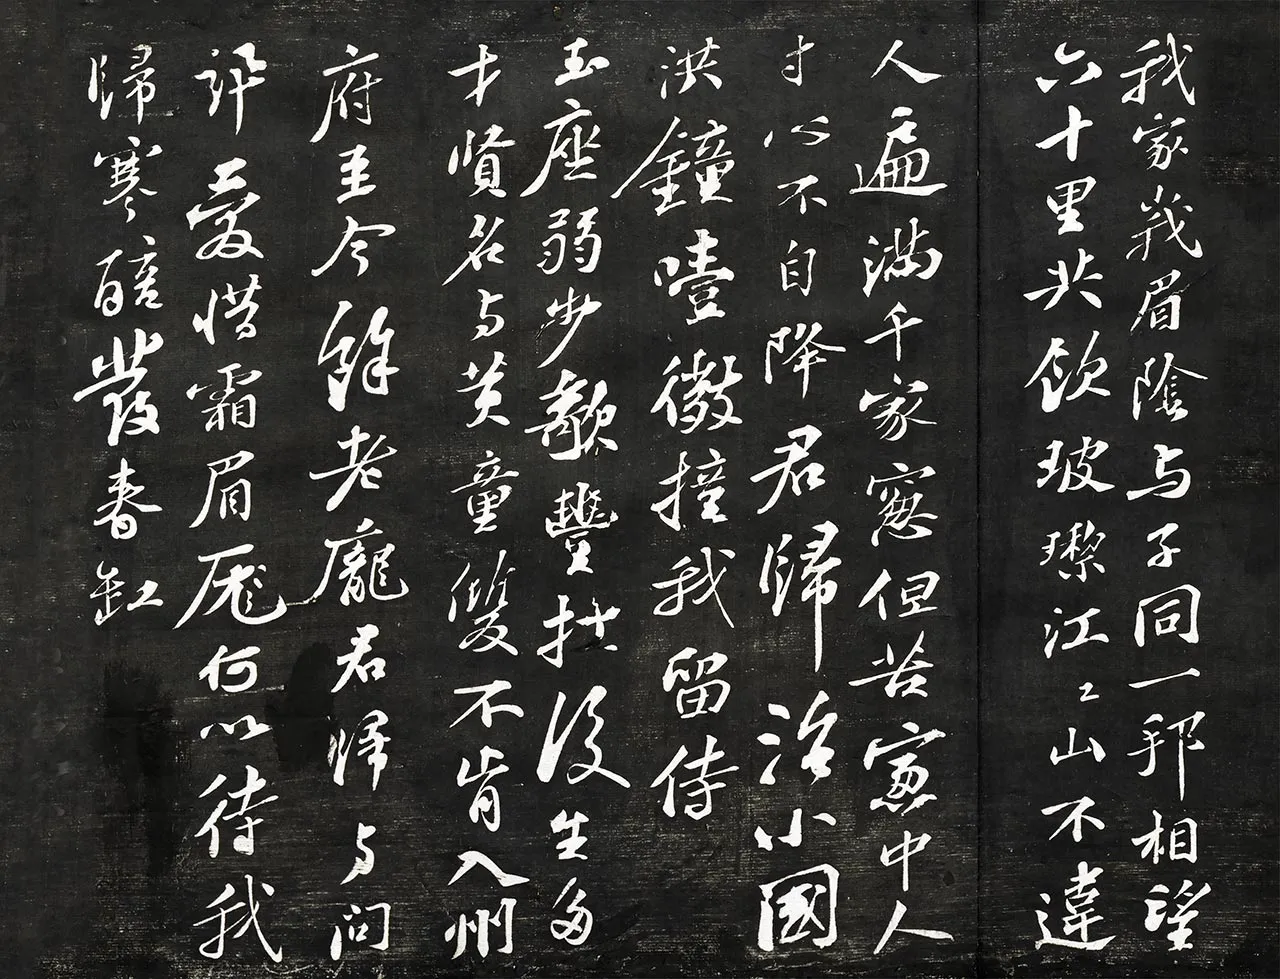 我家峩眉陰与子同一邦相望
六十里共飲玻瓈江〻山不違
人遍滿千家窓但苦窓中人
寸心不自降君歸治小國
洪鐘噎微撞我留侍
玉座弱步欹豐扛後生多
才賢名与黄童雙不肯入州
府至今餘老龐君歸与問
訊愛惜霜眉厖何以待我
歸寒醅發春缸